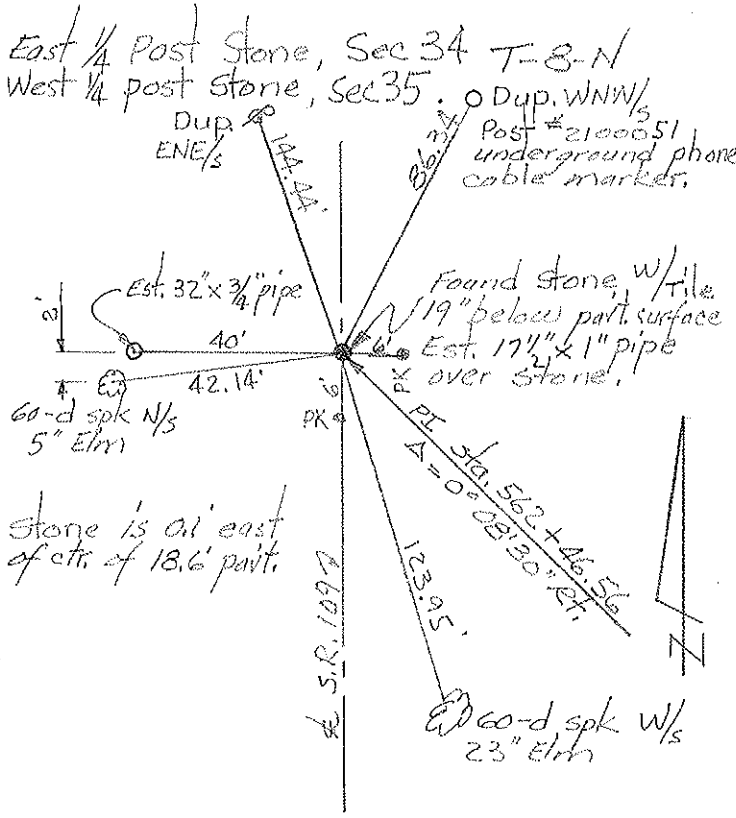 East 1/4 Post Stone, Sec 34 T-8-N
West 1/4 post stone, Sec 35.
Dup.
ENE/s
144.44'
86.34
Dup. WNW/s
Post #2100051
underground phone
cable marker.
2'
Est. 32" x 3/4" pipe
40'
42.14'
60-d spk N/s
5" Elm
Found stone W/Tile
19" below pavt. surface
Est. 17 1/2" x 1" pipe
over stone.
6'
PK
6'
PK
PI sta. 562+46.56
Δ = 0°08'30" Rt.
Stone is 0.1' east
of ctr. of 18.6' pavt.
℄ S.R. 109
123.95'
60-d spk W/s
23" Elm
N